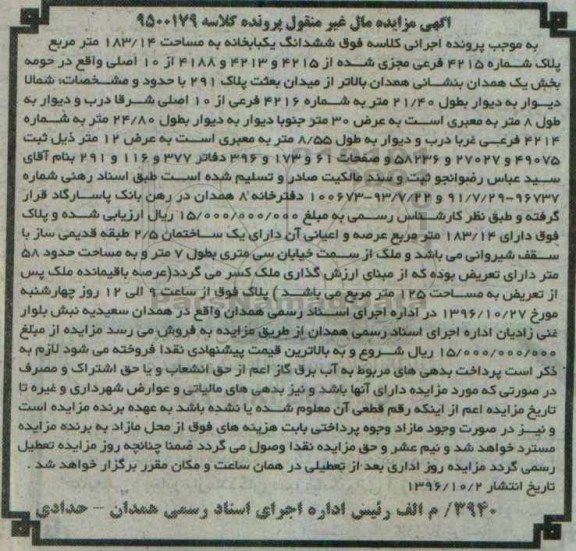 آگهی مزایده مال غیر منقول پرونده کلاسه ۹۵۰۰۱۷۹
به موجب پرونده اجرائی کلاسه فوق ششدانگ یکبابخانه به مساحت ۱۸۳/۱۴ متر مربع
پلاک شماره ۴۲۱۵ فرعی مجزی شده از ۴۲۱۵ و ۴۲۱۳ و ۴۱۸۸ از ۱۰ اصلی واقع در حومه
بخش یک همدان بنشانی همدان بالاتر از میدان بعثت پلاک ۲۹۱ با حدود و مشخصات: شمالا
دیوار به دیوار بطول ۲۱/۴۰ متر به شماره ۴۲۱۶ فرعی از ۱۰ اصلی شرقا درب و دیوار به
طول ۸ متر به معبری است به عرض ۳۰ متر جنوبا دیوار به دیوار بطول ۲۴/۸۰ متر به شماره
۴۲۱۴ فرعی غربا درب و دیوار به طول ۸/۵۵ متر به معبری است به عرض ۱۲ متر ذیل ثبت
۴۹۰۷۵ و ۲۷۰۲۷ و ۵۸۲۳۶ و صفحات ۶۱ و ۱۷۳ و ۳۹۶ دفاتر ۳۷۷ و ۱۱۶ و ۲۹۱ بنام آقای
سید عباس رضوانجو ثبت و سند مالکیت صادر و تسلیم شده است طبق اسناد رهنی شماره
۹۶۷۳۷-۹۱/۷/۲۹ و ۹۳/۷/۲۲-۱۰۰۶۷۳ دفترخانه ۸ همدان در رهن بانک پاسارگاد قرار
گرفته و طبق نظر کارشناس رسمی به مبلغ ۱۵/۰۰۰/۰۰۰/۰۰۰ ریال ارزیابی شده و پلاک
فوق دارای ۱۸۳/۱۴ متر مربع عرصه و اعیانی آن دارای یک ساختمان ۲/۵ طبقه قدیمی ساز با
سقف شیروانی می باشد و ملک از سمت خیابان سی متری بطول ۷ متر و به مساحت حدود ۵۸
متر دارای تعریض بوده که از مبنای ارزش گذاری ملک کسر می گردد(عرصه باقیمانده ملک پس
از تعریض به مساحت ۱۲۵ متر مربع می باشد) پلاک فوق از ساعت ۹ الی ۱۲ روز چهارشنبه
مورخ ۱۳۹۶/۱۰/۲۷ در اداره اجرای اسناد رسمی همدان واقع در همدان سعیدیه نبش بلوار
غنی زادیان اداره اجرای اسناد رسمی همدان از طریق مزایده به فروش می رسد مزایده از مبلغ
۱۵/۰۰۰/۰۰۰/۰۰۰ ریال شروع و به بالاترین قیمت پیشنهادی نقدا فروخته می شود لازم به
ذکر است پرداخت بدهی های مربوط به آب برق گاز اعم از حق انشعاب و یا حق اشتراک و مصرف
در صورتی که مورد مزایده دارای آنها باشد و نیز بدهی های مالیاتی و عوارض شهرداری و غیره تا
تاریخ مزایده اعم از اینکه رقم قطعی آن معلوم شده یا نشده باشد به عهده برنده مزایده است
و نیز در صورت وجود مازاد وجوه پرداختی بابت هزینه های فوق از محل مازاد به برنده مزایده
مسترد خواهد شد و نیم عشر و حق مزایده نقدا وصول می گردد ضمنا چنانچه روز مزایده تعطیل
رسمی گردد مزایده روز اداری بعد از تعطیلی در همان ساعت و مکان مقرر برگزار خواهد شد .
تاریخ انتشار ۱۳۹۶/۱۰/۲
۳۹۴۰/ م الف رئیس اداره اجرای اسناد رسمی همدان - حدادی